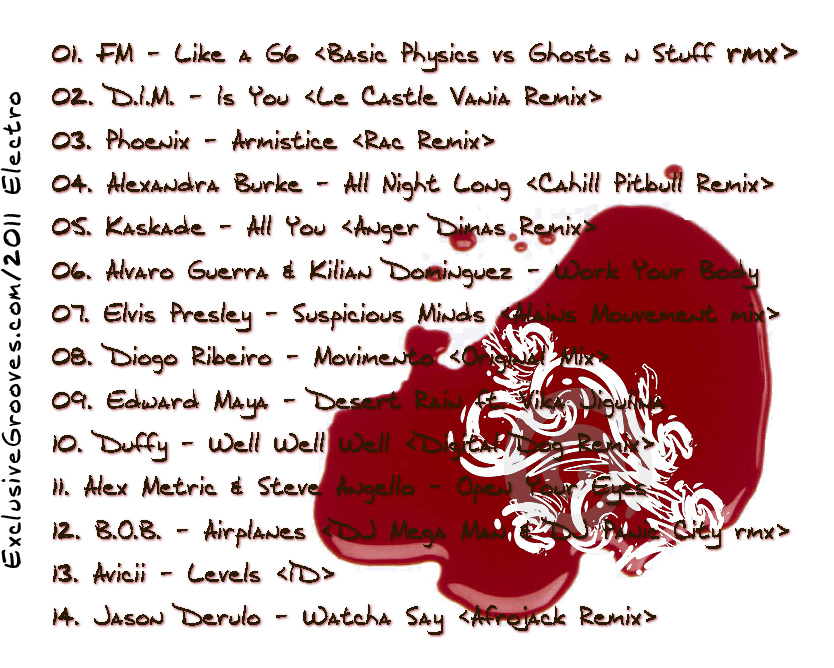 01. FM - Like a G6 <Basic Physics vs Ghosts n Stuff rmx>
02. D.I.M. - Is You <Le Castle Vania Remix>
03. Phoenix - Armistice <Rac Remix>
04. Alexandra Burke - All Night Long <Cahill Pitbull Remix>
05. Kaskade - All You <Anger Dimas Remix>
06. Alvaro Guerra & Kilian Dominguez - Work Your Body
07. Elvis Presley - Suspicious Minds <Alains Mouvement mix>
08. Diogo Ribeiro - Movimento <Original Mix>
09. Edward Maya - Desert Rain ft. Vika Jigulina
10. Duffy - Well Well Well <Digital Dog Remix>
11. Alex Metric & Steve Angello - Open Your Eyes
12. B.O.B. - Airplanes <DJ Mega Man & DJ Panic City rmx>
13. Avicii - Levels <ID>
14. Jason Derulo - Watcha Say <Afrojack Remix>
ExclusiveGrooves.com/2011 Electro